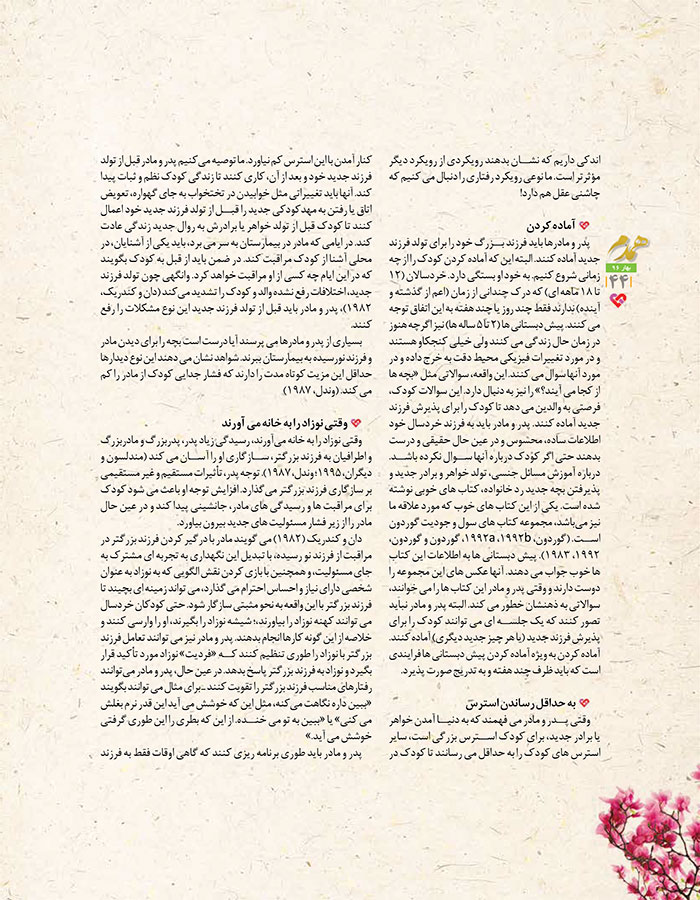 اندکی داریم که نشان بدهند رویکردی از رویکرد دیگر
مؤثرتر است. ما نوعی رویکرد رفتاری را دنبال می کنیم که
چاشنی عقل هم دارد!
آماده کردن
پدر و مادرها باید فرزند بزرگ خود را برای تولد فرزند
جدید آماده کنند. البته این که آماده کردن کودک را از چه
زمانی شروع کنیم. به خود او بستگی دارد. خردسالان (۱۲
تا ۱۸ ماهه ای) که درک چندانی از زمان (اعم از گذشته و
آینده) ندارند فقط چند روز یا چند هفته به این اتفاق توجه
می کنند. پیش دبستانی ها (۲ تا ۵ ساله ها) نیز اگرچه هنوز
در زمان حال زندگی می کنند ولی خیلی کنجکاو هستند
و در مورد تغییرات فیزیکی محیط دقت به خرج داده و در
مورد آنها سوال می کنند. این واقعه، سوالاتی مثل «بچه ها
از کجا می آیند؟» را نیز به دنبال دارد. این سوالات کودک،
فرصتی به والدین می دهد تا کودک را برای پذیرش فرزند
جدید آماده کنند. پدر و مادر باید به فرزند خردسال خود
اطلاعات ساده، محسوس و در عین حال حقیقی و درست
بدهند حتی اگر کودک درباره آنها سوال نکرده باشد.
درباره آموزش مسائل جنسی، تولد خواهر و برادر جدید و
پذیرفتن بچه جدید رد خانواده، کتاب های خوبی نوشته
شده است. یکی از این کتاب های خوب که مورد علاقه ما
نیز می باشد، مجموعه کتاب های سول و جودیت گوردون
است. (گوردون، ۱۹۹۲a، ۱۹۹۲b، گوردون و گوردون،
۱۹۹۲، ۱۹۸۳). پیش دبستانی ها به اطلاعات این کتاب
ها خوب جواب می دهند. آنها عکس های این مجموعه را
دوست دارند و وقتی پدر و مادر این کتاب ها را می خوانند،
سوالاتی به ذهنشان خطور می کند. البته پدر و مادر نباید
تصور کنند که یک جلسه ای می توانند کودک را برای
پذیرش فرزند جدید (یا هر چیز جدید دیگری) آماده کنند.
آماده کردن به ویژه آماده کردن پیش دبستانی ها فرایندی
است که باید ظرف چند هفته و به تدریج صورت پذیرد.
به حداقل رساندن استرس
وقتی پدر و مادر می فهمند که به دنیا آمدن خواهر
یا برادر جدید، برای کودک استرس بزرگی است، سایر
استرس های کودک را به حداقل می رسانند تا کودک در
کنار آمدن با این استرس کم نیاورد. ما توصیه می کنیم پدر و مادر قبل از تولد
فرزند جدید خود و بعد از آن، کاری کنند تا زندگی کودک نظم و ثبات پیدا
کند. آنها باید تغییراتی مثل خوابیدن در تختخواب به جای گهواره، تعویض
اتاق یا رفتن به مهدکودکی جدید را قبل از تولد فرزند جدید خود اعمال
کنند تا کودک قبل از تولد خواهر یا برادرش به روال جدید زندگی عادت
کند. در ایامی که مادر در بیمارستان به سر می برد، باید یکی از آشنایان، در
محلی آشنا از کودک مراقبت کند. در ضمن باید از قبل به کودک بگویند
که در این ایام چه کسی از او مراقبت خواهد کرد. وانگهی چون تولد فرزند
جدید، اختلافات رفع نشده والد و کودک را تشدید می کند (دان و کندریک،
۱۹۸۲)، پدر و مادر باید قبل از تولد فرزند جدید این نوع مشکلات را رفع
کنند.
بسیاری از پدر و مادرها می پرسند آیا درست است بچه را برای دیدن مادر
و فرزند نورسیده به بیمارستان ببرند. شواهد نشان می دهند این نوع دیدارها
حداقل این مزیت کوتاه مدت را دارند که فشار جدایی کودک از مادر را کم
می کند. (وندل، ۱۹۸۷)
وقتی نوزاد را به خانه می آورند
وقتی نوزاد را به خانه می‌آورند، رسیدگی زیاد پدر، پدربزرگ و مادربزرگ
و اطرافیان به فرزند بزرگتر، سازگاری او را آسان می کند (مندلسون و
دیگران، ۱۹۹۵؛ وندل، ۱۹۸۷). توجه پدر، تأثیرات مستقیم و غیر مستقیمی
بر سازگاری فرزند بزرگتر می گذارد. افزایش توجه او باعث می شود کودک
برای مراقبت ها و رسیدگی های مادر، جانشینی پیدا کند و در عین حال
مادر را از زیر فشار مسئولیت های جدید بیرون بیاورد.
دان و کندریک (۱۹۸۲) می گویند مادر با درگیر کردن فرزند بزرگتر در
مراقبت از فرزند نو رسیده، با تبدیل این نگهداری به تجربه ای مشترک به
جای مسئولیت، و همچنین با بازی کردن نقش الگویی که به نوزاد به عنوان
شخصی دارای نیاز و احساس احترام می گذارد، می تواند زمینه ای بچیند تا
فرزند بزرگتر با این واقعه به نحو مشبتی سازگار شود. حتی کودکان خردسال
می توانند کهنه نوزاد را بیاورند،؛ شیشه نوزاد را بگیرند، او را وارسی کنند و
خلاصه از این گونه کارها انجام بدهند. پدر و مادر نیز می توانند تعامل فرزند
بزرگتر با نوزاد را طوری تنظیم کنند که «فردیت» نوزاد مورد تأکید قرار
بگیرد و نوزاد به فرزند بزرگتر پاسخ بدهد. در عین حال، پدر و مادر می‌توانند
رفتارهای مناسب فرزند بزرگتر را تقویت کنند ـ برای مثال می توانند بگویند
«ببین داره نگاهت می‌کنه، مثل این که خوشش می آید این قدر نرم بغلش
می کنی» یا «ببین به تو می خنده. از این که بطری را این طوری گرفتی
خوشش می آید.»
پدر و مادر باید طوری برنامه ریزی کنند که گاهی اوقات فقط به فرزند
همدم
بهار ۹۶
۴۴